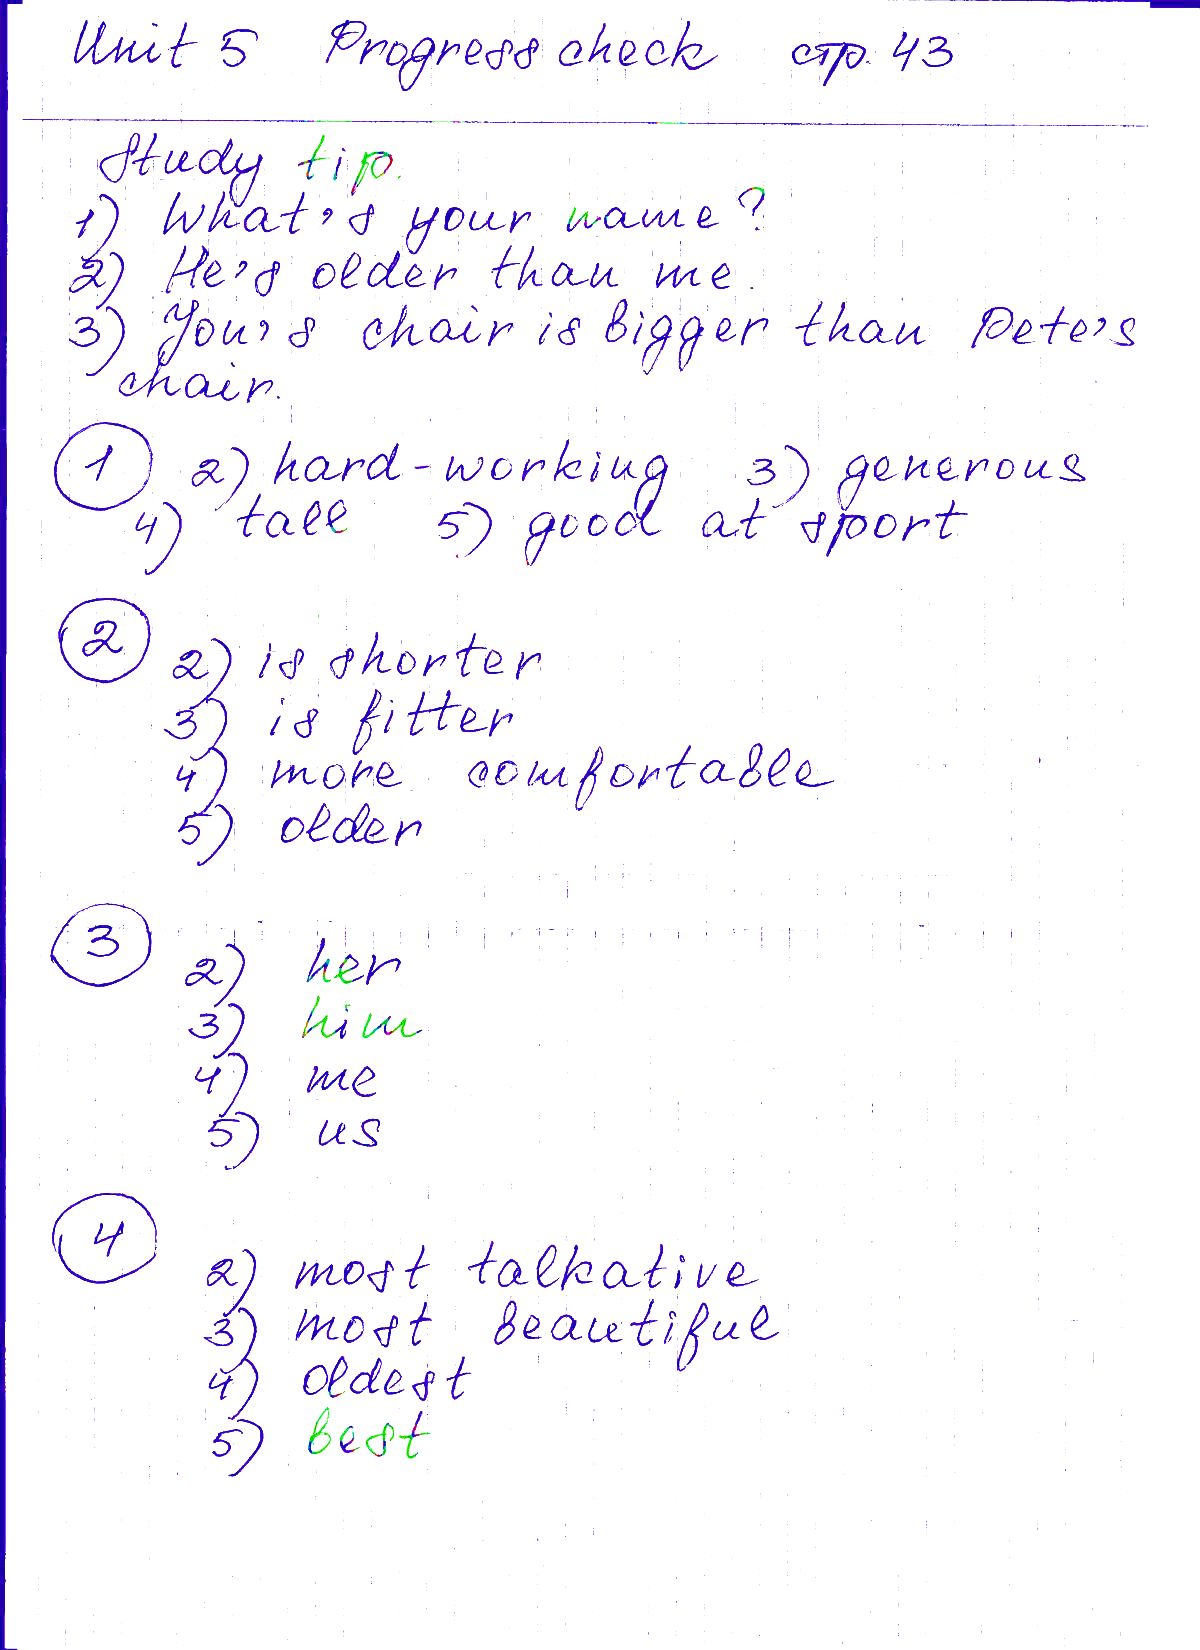 Unit 5 Progress check стр. 43
Study tip.
1) What's your name?
2) He's older than me.
3) You's chair is bigger than Pete's
chair.
1 2) hard-working 3) generous
4) tall 5) good at sport
2 2) is shorter
3) is fitter
4) more comfortable
5) older
3 2) her
3) him
4) me
5) us
4 2) most talkative
3) most beautiful
4) oldest
5) best